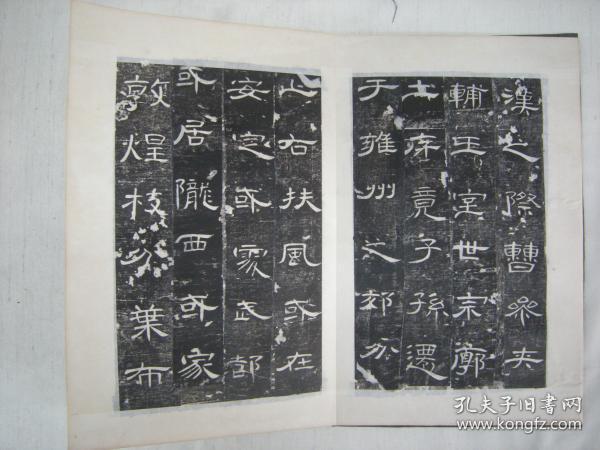 漢之際曹參夾
輔王室世宗廓
土斥竟子孫遷
于雍州之郊分
止右扶風或在
安定或處武都
或居隴西或家
敦煌枝分葉布
孔夫子旧書网
www.kongfz.com